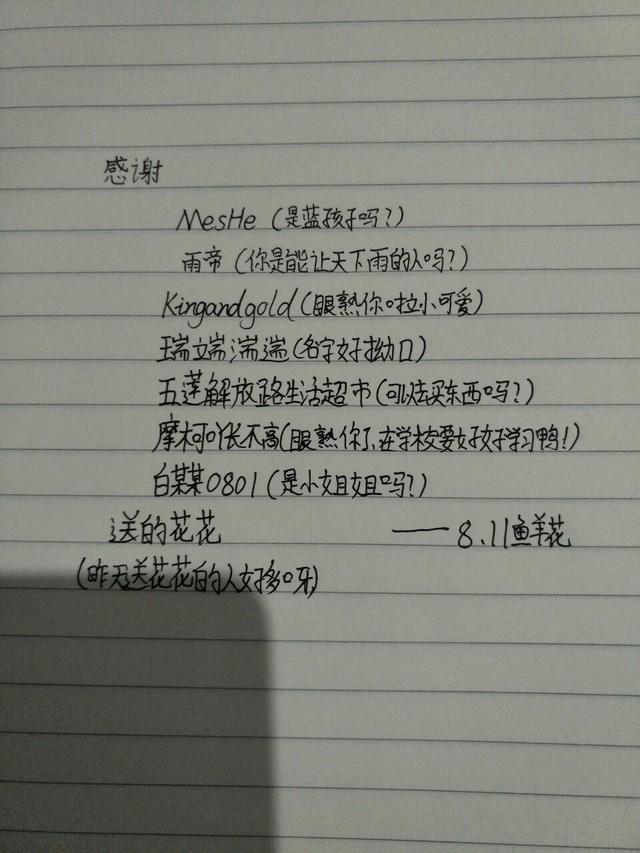 感谢
MesHe（是蓝孩子吗？）
雨帝（你是能让天下雨的人吗？）
Kingandgold（眼熟你啦小可爱）
瑞端湍遄（名字好拗口）
五莲解放路生活超市（可以去买东西吗？）
摩柯吖长不高（眼熟你了，在学校要好好学习鸭！）
白某某0801（是小姐姐吗？）
送的花花 ——8.11鱼羊花
（昨天送花花的人好多呀）